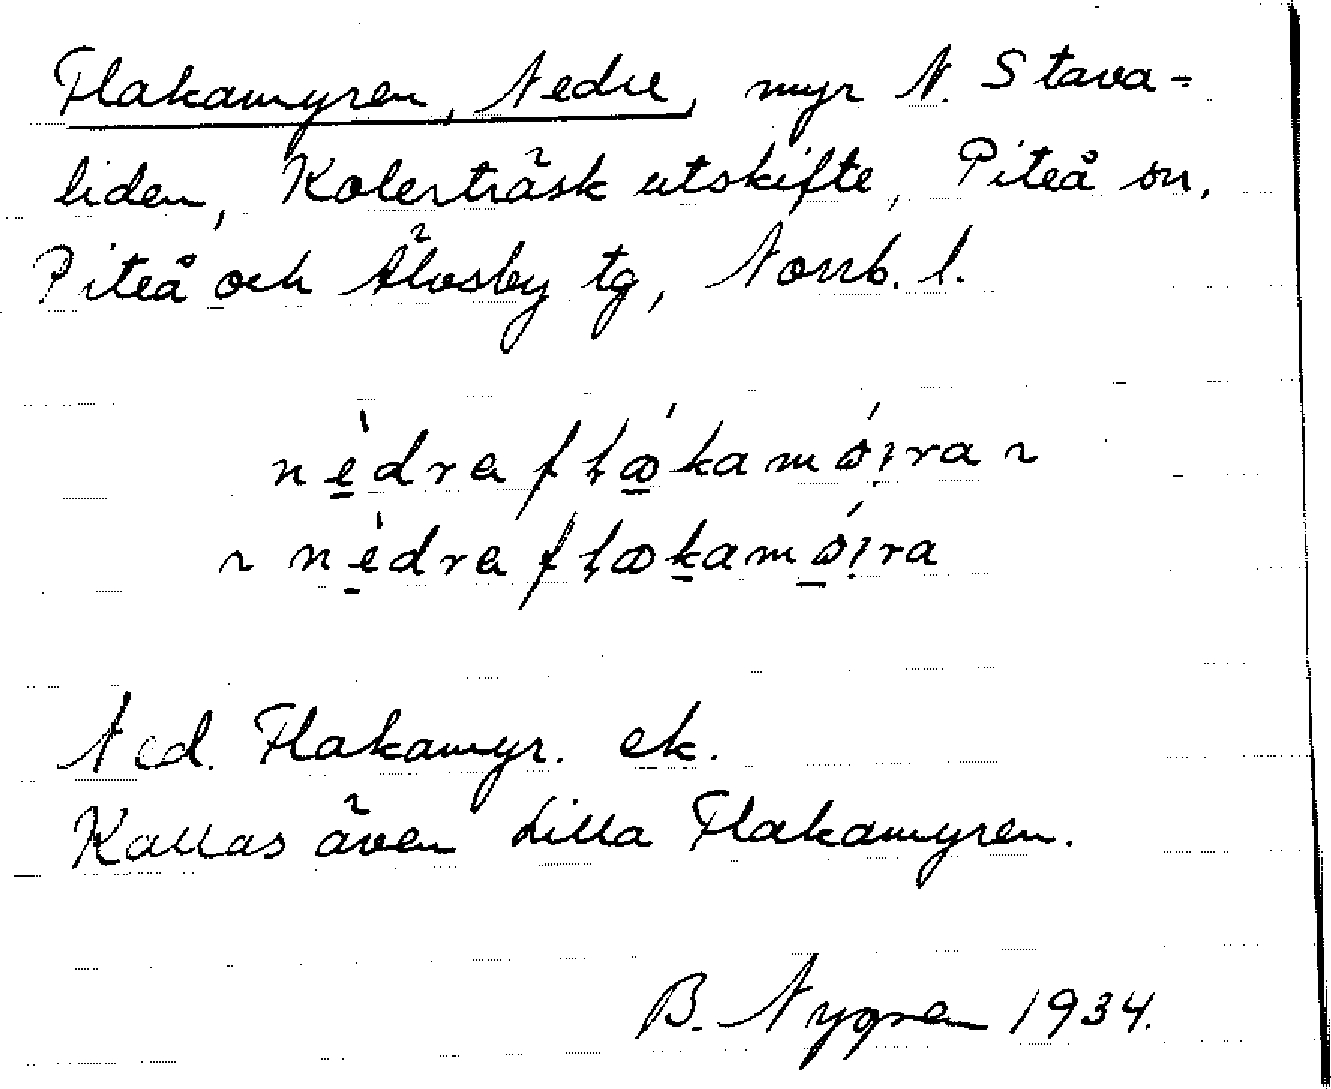 Flakamyren, Nedre, myr N. Stava-
liden, Kolerträsk utskifte, Piteå sn,
Piteå och Älvsby tg, Norrb. l.
Ned. Flakamyr. ek.
Kallas även Lilla Flakamyren.
B. Nygren 1934.